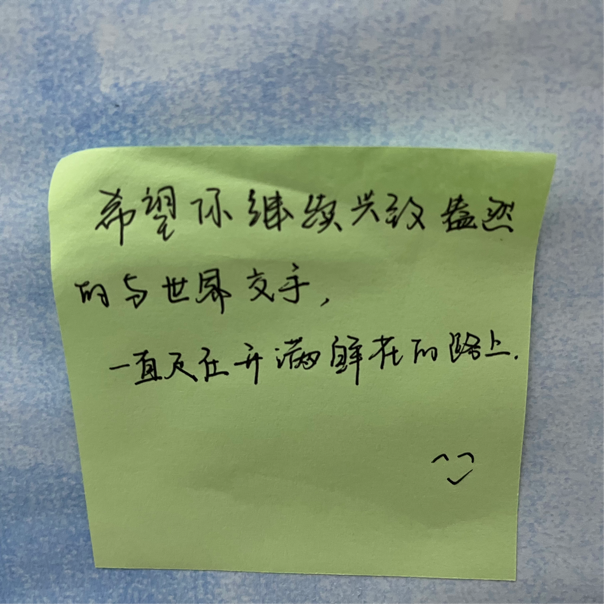 希望你继续兴致盎然
的与世界交手，
一直走在开满鲜花的路上.